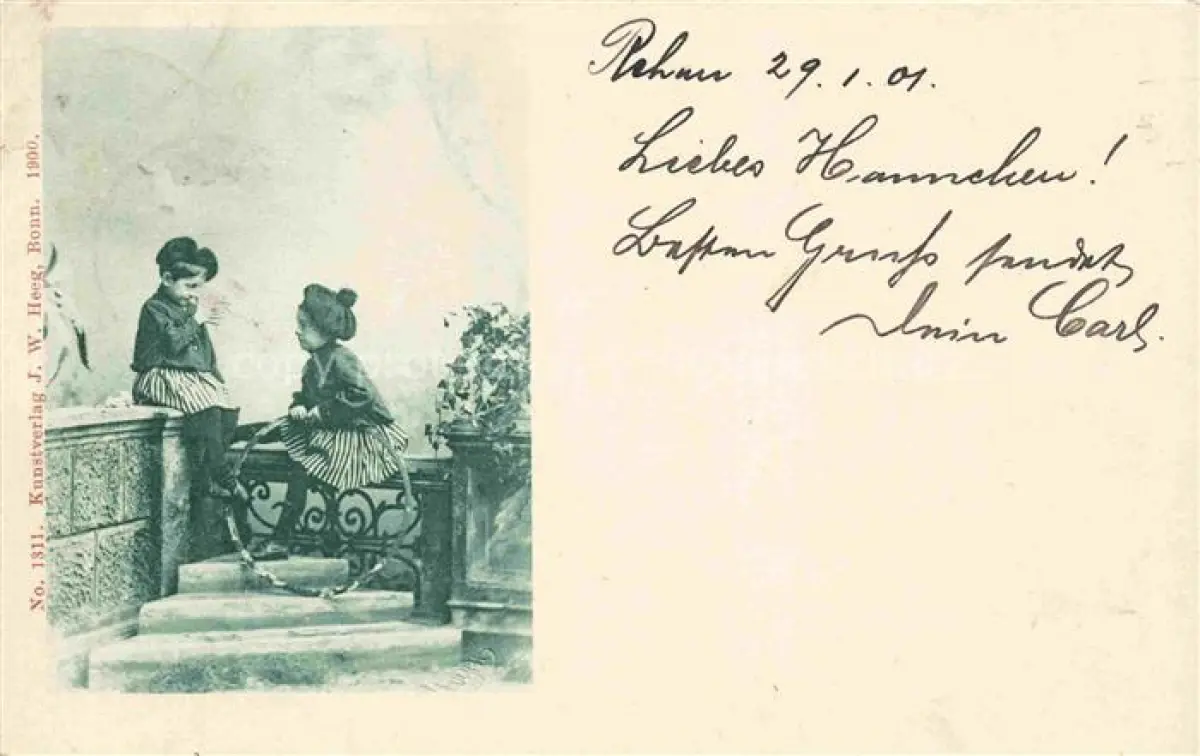 No. 1311. Kunstverlag J. W. Heeg, Bonn. 1900.
Rehau 29. 1. 01.
Liebes Hannchen!
Besten Gruß sendet
Dein Carl.